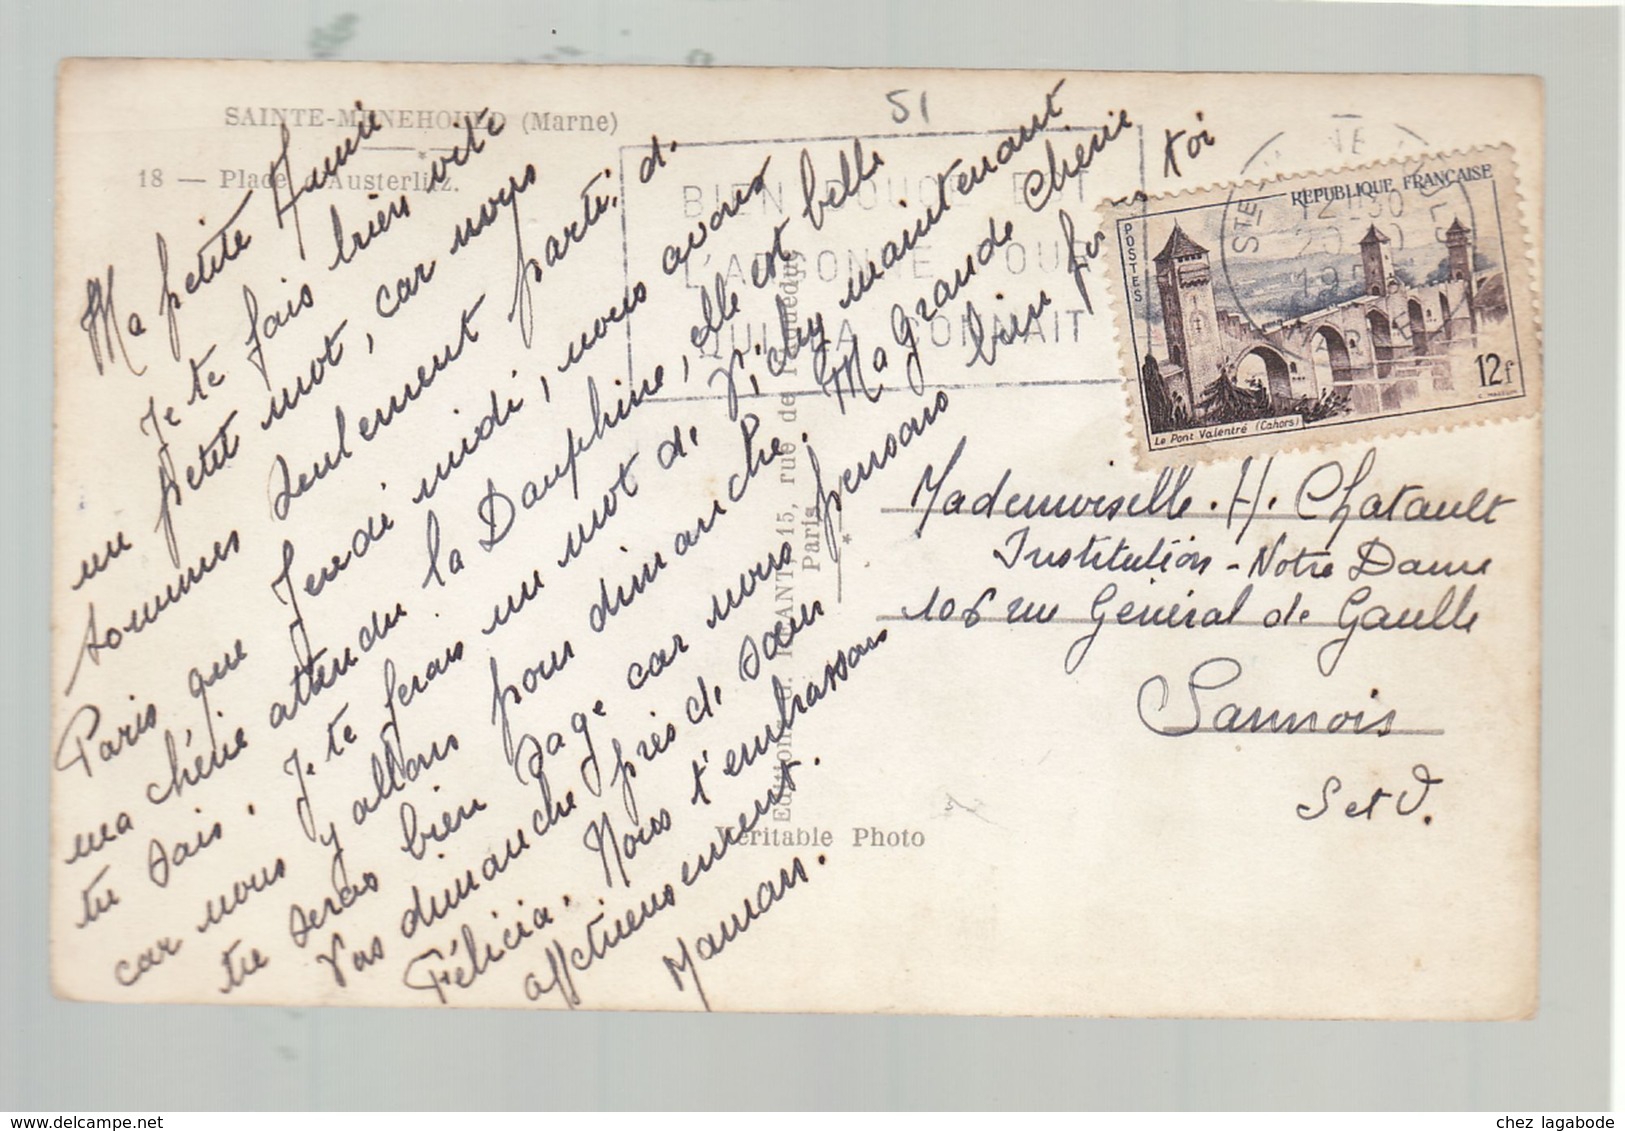 SAINTE-MENEHOULD (Marne)
18 — Place d'Austerlitz.
51
Ma petite Annie
Je te fais bien vite
un petit mot, car nous
sommes seulement parti, de
Paris que Jeudi midi, nous avons
ma chérie attendu la Dauphine, elle est belle
tu sais. Je te ferais un mot de Vichy maintenant
car nous y allons pour dimanche. Ma Grande Chérie
tu seras bien sage car nous pensons bien fors toi
Vas dimanche près de Sœur
Félicia. Nous t'embrassons
affectueusement.
Maman.
Editions 15, rue de Paris
Véritable Photo
BIEN EST
QUI LA CONNAIT
STE
12-30
MARNE
REPUBLIQUE FRANÇAISE
POSTES
12f
Le Pont Valentré (Cahors)
Mademoiselle. H. Chatault
Institution - Notre Dame
106 rue Général de Gaulle
Sannois
S et O.
chez lagabode